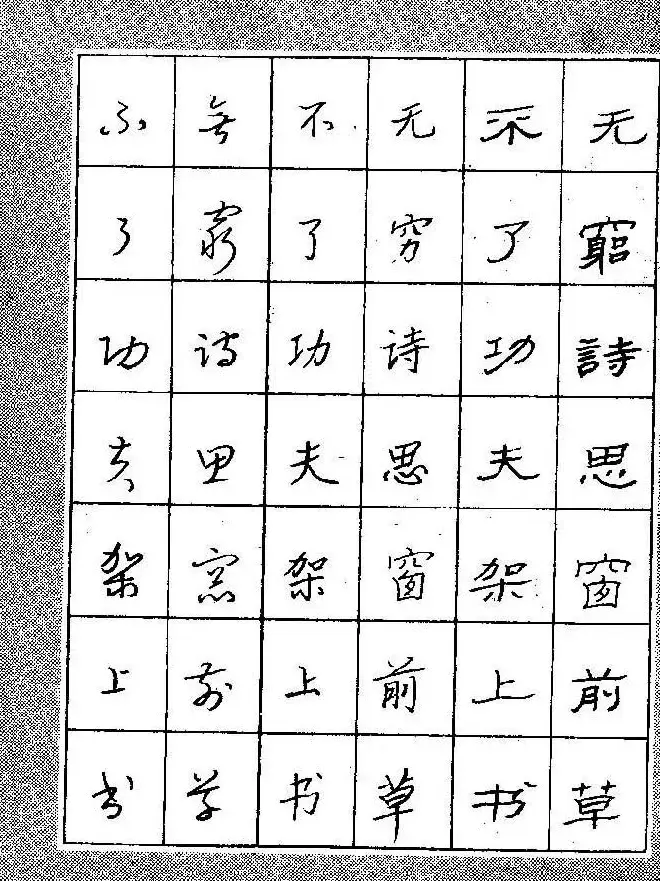 无窮詩思窗前草
不了功夫架上书
无穷诗思窗前草
不了功夫架上书
無窮诗思窗前草
不了功夫架上书